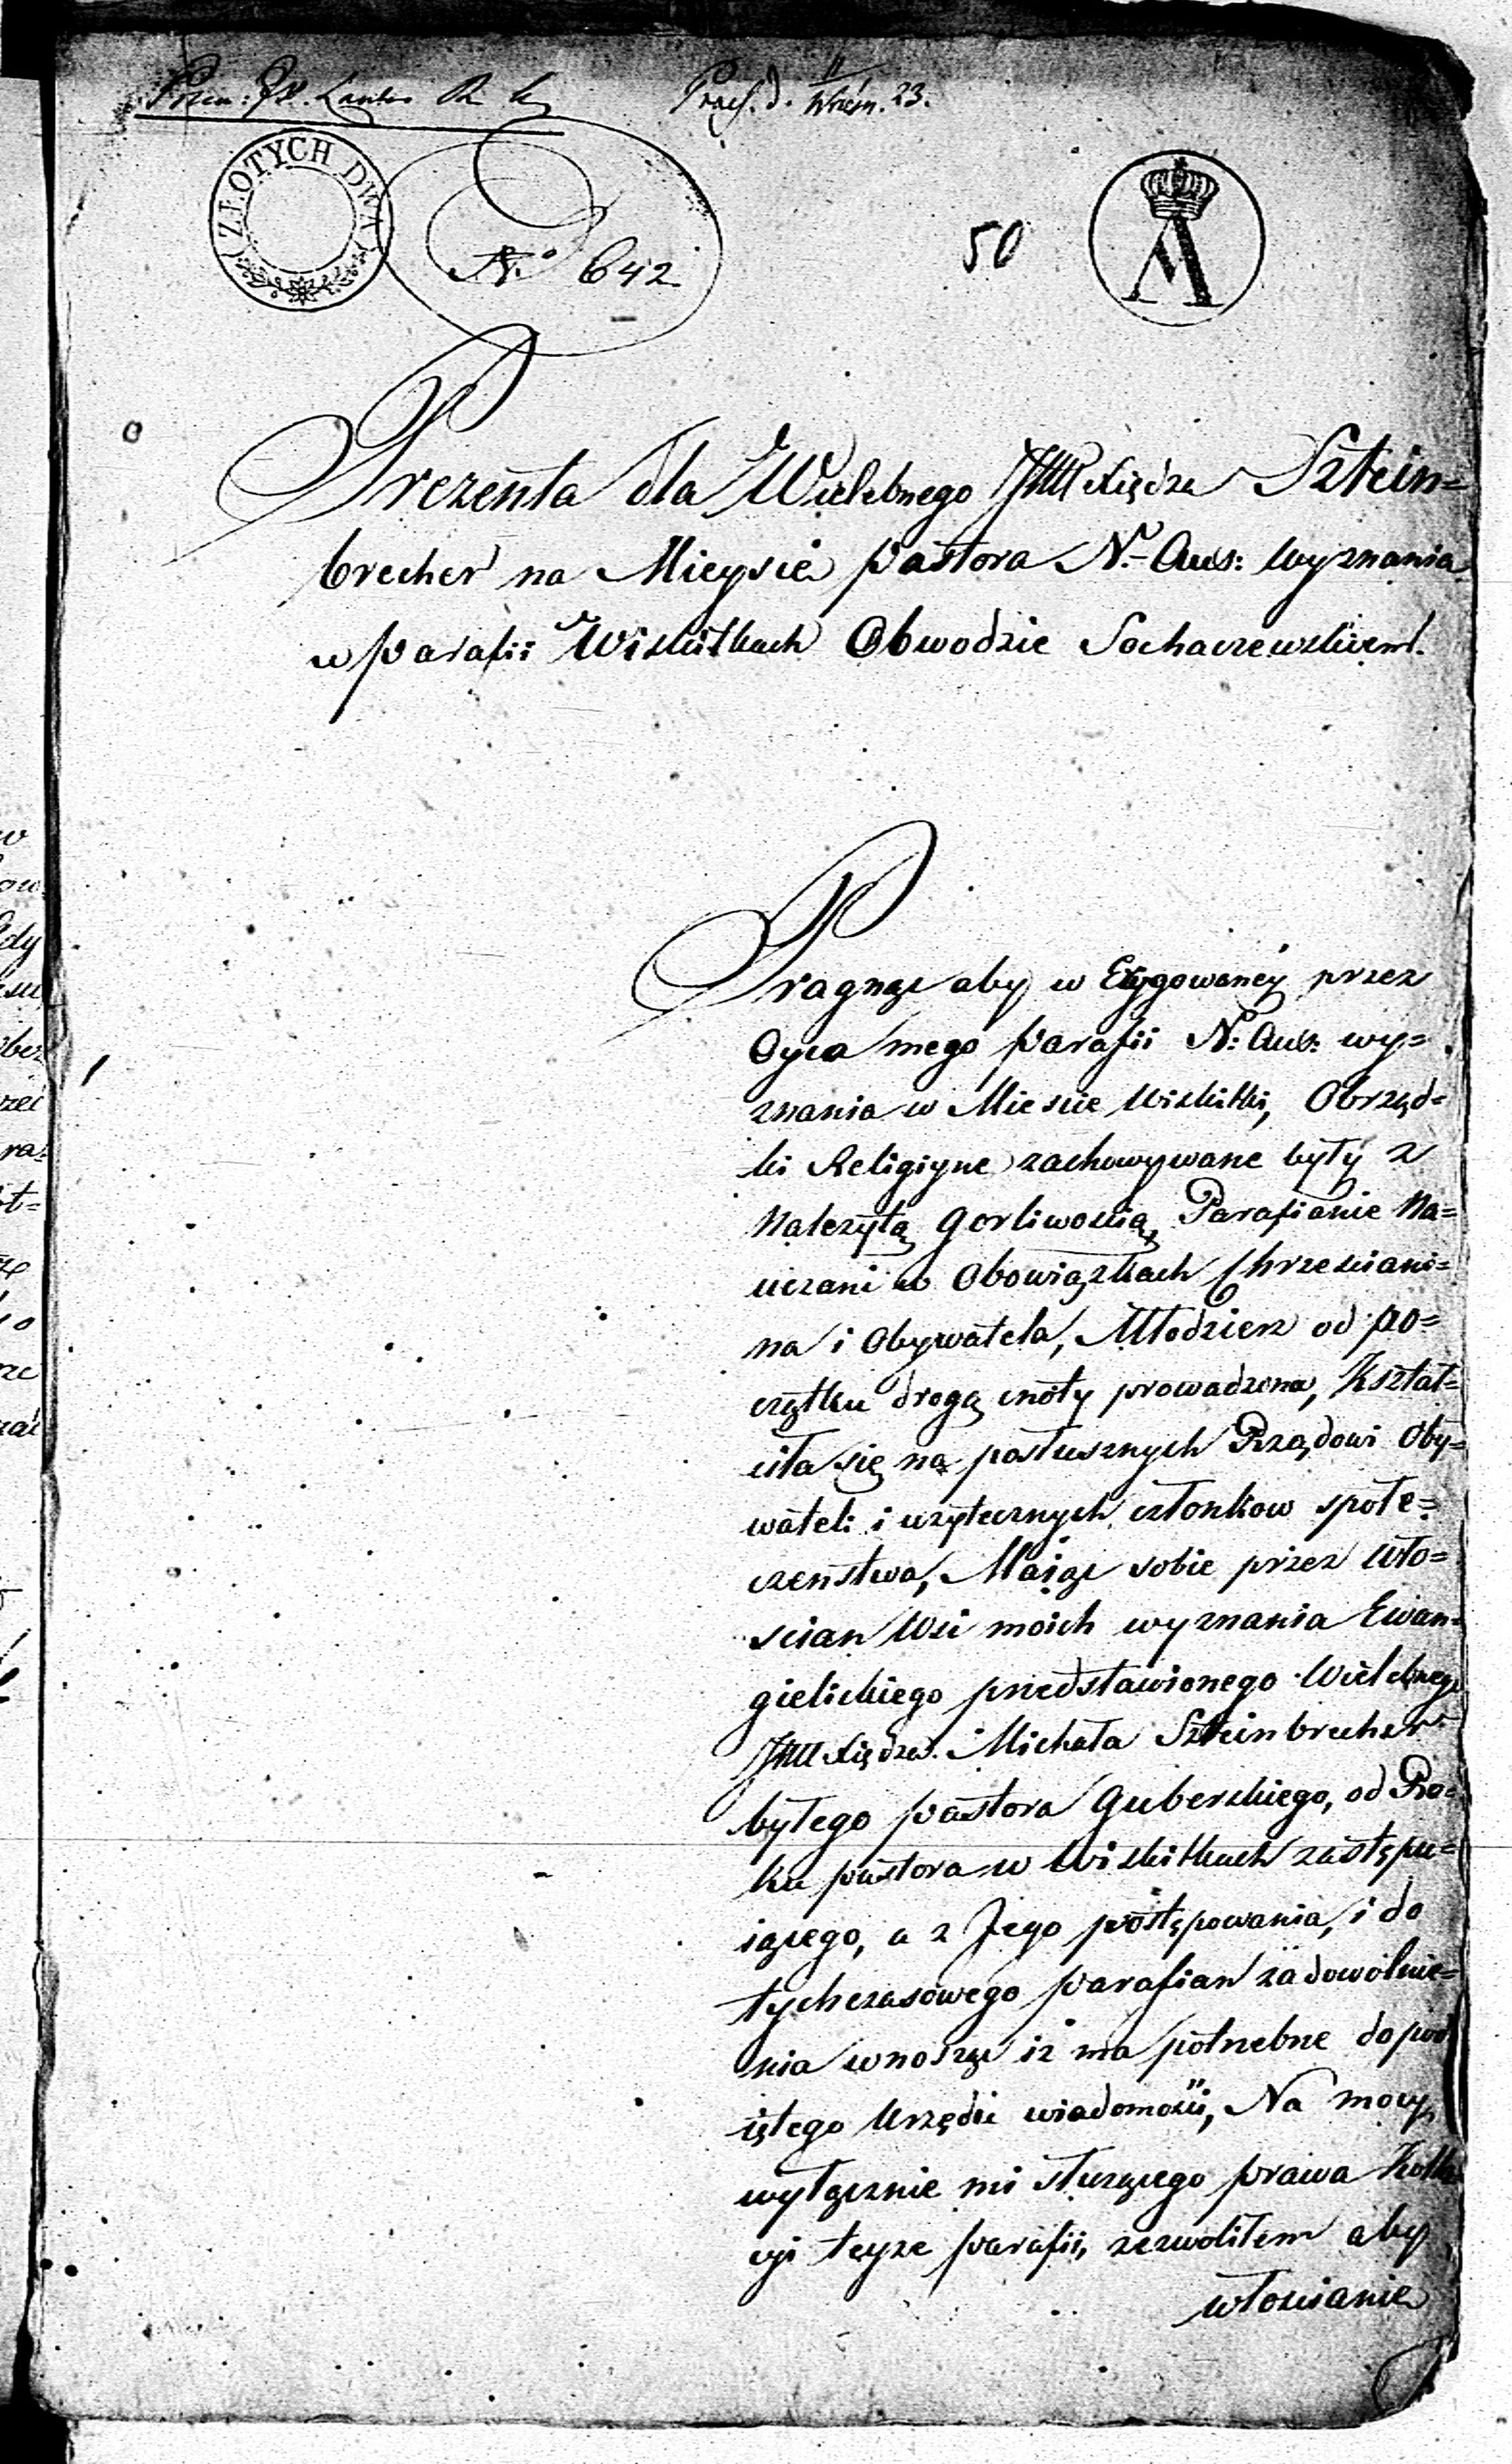 Praes. d. 11 Wrześn. 23.
ZŁOTYCH DWA
No 642
50
A
Prezenta dla Wielebnego JM Xiędza Sztein=
brecher na Mieysce Pastora N. Aus: Wyznania
w Parafii Wiskitkach Obwodzie Sochaczewskiem.
Pragnąc aby w Erygowaney przez
Oyca mego Parafii N: Aus: wy=
znania w Miescie Wiskitki, Obrząd=
ki Religiyne zachowywane były z
Należytą gorliwością, Parafianie Na=
uczani w Obowiązkach Chrzesciani=
na i Obywatela, Młodziez od po=
czątku drogą cnoty prowadzona, Kształ=
ciła się na posłusznych Rządowi Oby=
wateli i uzytecznych członkow społe=
czenstwa, Maiąc sobie przez Wło=
scian Wsi moich wyznania Ewan=
gielickiego przedstawionego Wielebnego
JM Xiędza Michała Szteinbrecher
byłego Pastora Guberskiego, od Ro=
ku Pastora w Wiskitkach zastępu=
iącego, a z Jego postępowania, i do
tychczasowego Parafian zadowolnie=
nia wnosząc iz ma potrzebne do
iętego Urzędu wiadomości, Na mocy
wyłącznie mi służącego prawa
cyi teyze Parafii, zezwoliłem aby
włoscianie